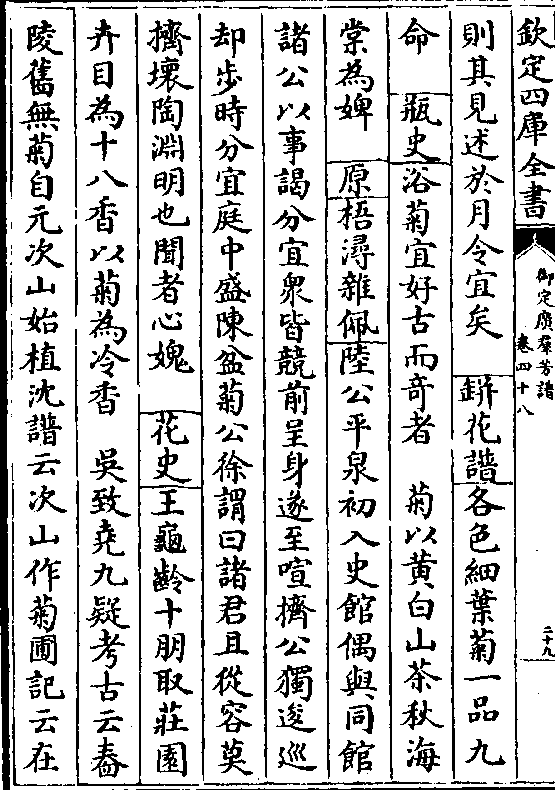 欽定四庫全書
御定廣羣芳譜
卷四十八
二十九
則其見述於月令宜矣　缾花譜各色細葉菊一品九
命　瓶史浴菊宜好古而奇者　菊以黄白山茶秋海
棠為婢　原梧潯雜佩陸公平泉初入史館偶與同館
諸公以事謁分宜衆皆競前呈身遂至喧擠公獨逡巡
却步時分宜庭中盛陳盆菊公徐謂曰諸君且從容莫
擠壞陶淵明也聞者心媿　花史王龜齡十朋取莊園
卉目為十八香以菊為冷香　吳致堯九疑考古云舂
陵舊無菊自元次山始植沈譜云次山作菊圃記云在